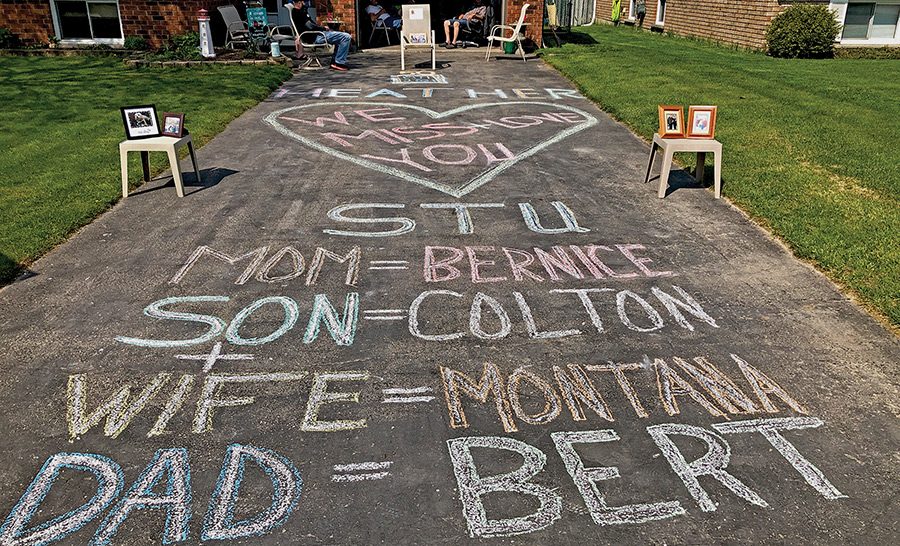 HEATHER
WE LOVE
MISS
YOU
STU
MOM = BERNICE
SON = COLTON
+
WIFE = MONTANA
DAD = BERT